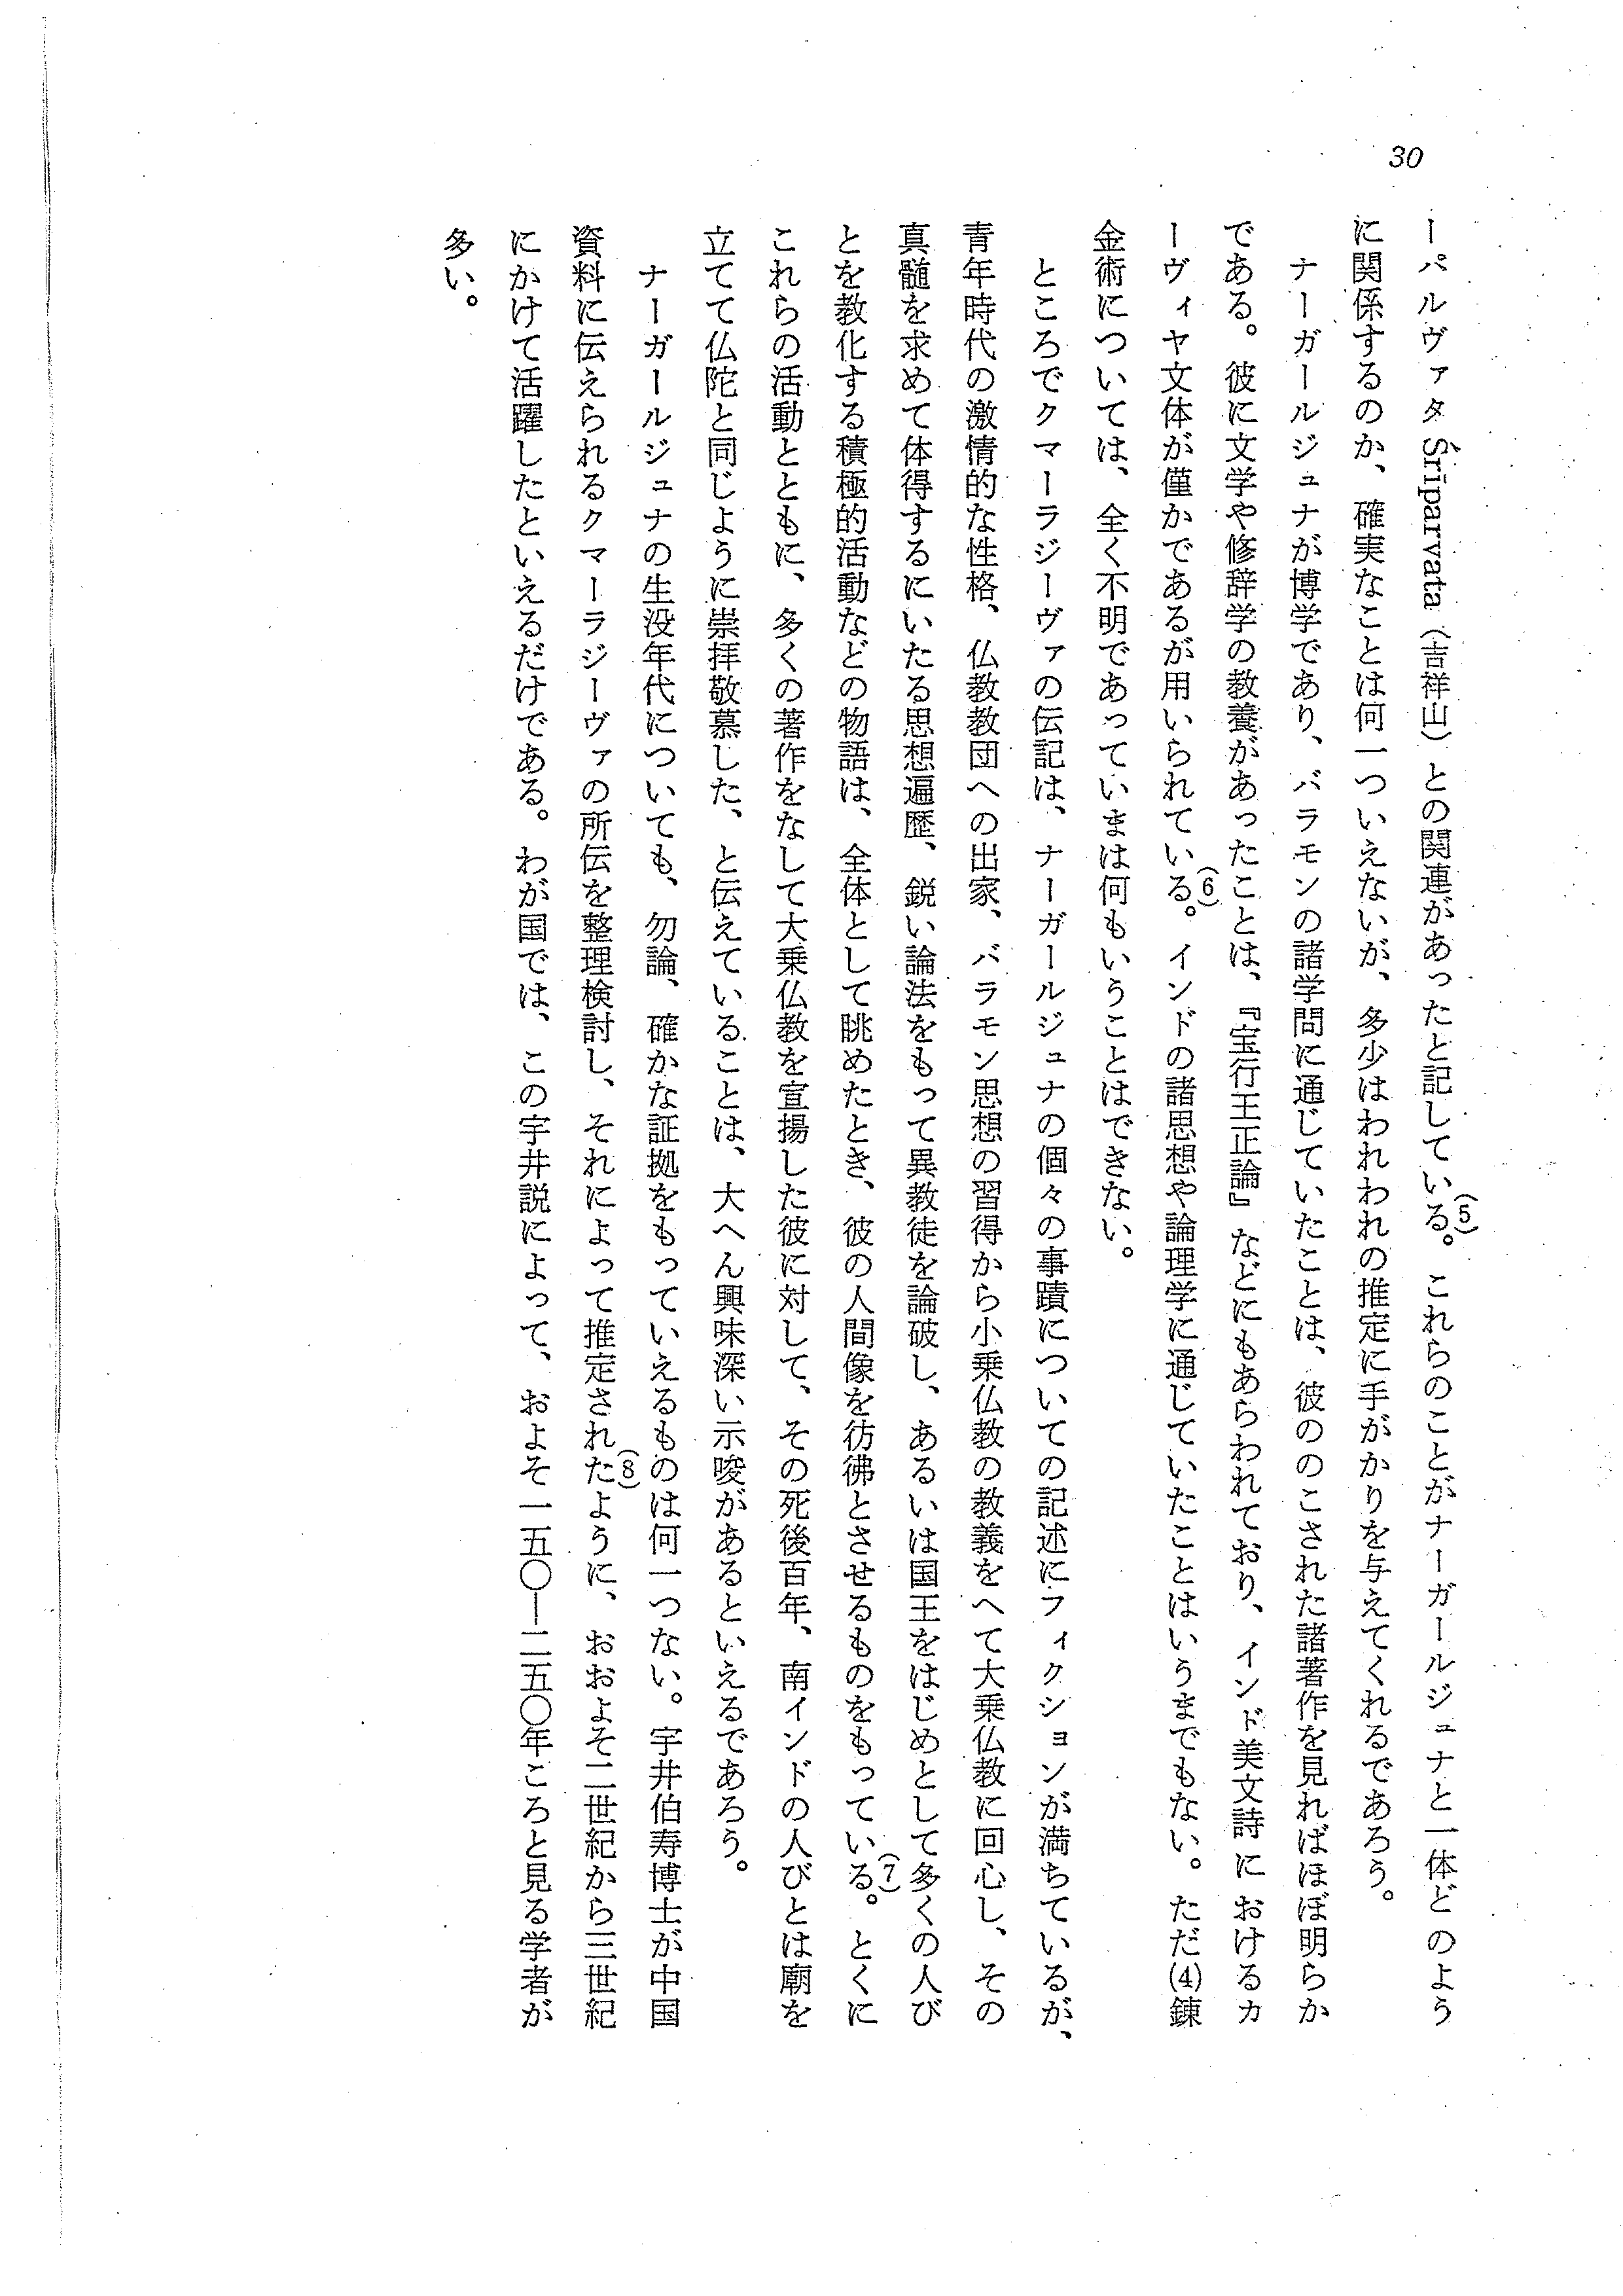 30
ーパルヴァタ Śrīparvata（吉祥山）との関連があったと記している。(5) これらのことがナーガールジュナと一体どのよう
に関係するのか、確実なことは何一ついえないが、多少はわれわれの推定に手がかりを与えてくれるであろう。
ナーガールジュナが博学であり、バラモンの諸学問に通じていたことは、彼ののこされた諸著作を見ればほぼ明らか
である。彼に文学や修辞学の教養があったことは、『宝行王正論』などにもあらわれており、インド美文詩におけるカ
ーヴィヤ文体が僅かであるが用いられている。(6) インドの諸思想や論理学に通じていたことはいうまでもない。ただ(4)錬
金術については、全く不明であっていまは何もいうことはできない。
ところでクマーラジーヴァの伝記は、ナーガールジュナの個々の事蹟についての記述にフィクションが満ちているが、
青年時代の激情的な性格、仏教教団への出家、バラモン思想の習得から小乗仏教の教義をへて大乗仏教に回心し、その
真髄を求めて体得するにいたる思想遍歴、鋭い論法をもって異教徒を論破し、あるいは国王をはじめとして多くの人び
とを教化する積極的活動などの物語は、全体として眺めたとき、彼の人間像を彷彿とさせるものをもっている。(7) とくに
これらの活動とともに、多くの著作をなして大乗仏教を宣揚した彼に対して、その死後百年、南インドの人びとは廟を
立てて仏陀と同じように崇拝敬慕した、と伝えていることは、大へん興味深い示唆があるといえるであろう。
ナーガールジュナの生没年代についても、勿論、確かな証拠をもっていえるものは何一つない。宇井伯寿博士が中国
資料に伝えられるクマーラジーヴァの所伝を整理検討し、それによって推定された(8)ように、おおよそ二世紀から三世紀
にかけて活躍したといえるだけである。わが国では、この宇井説によって、およそ一五〇―二五〇年ころと見る学者が
多い。